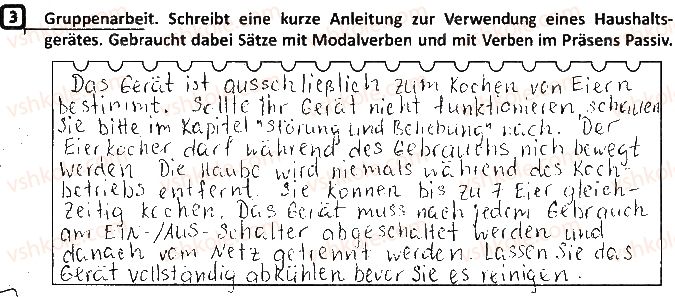 3 Gruppenarbeit. Schreibt eine kurze Anleitung zur Verwendung eines Haushalts-
gerätes. Gebraucht dabei Sätze mit Modalverben und mit Verben im Präsens Passiv.
Das Gerät ist ausschließlich zum Kochen von Eiern
bestimmt. Sollte Ihr Gerät nicht funktionieren, schauen
Sie bitte im Kapitel "Störung und Behebung" nach. Der
Eierkocher darf während des Gebrauchs nich bewegt
werden. Die Haube wird niemals während des Koch-
betriebs entfernt. Sie können bis zu 7 Eier gleich-
zeitig kochen. Das Gerät muss nach jedem Gebrauch
am EIN-/AUS-Schalter abgeschaltet werden und
danach vom Netz getrennt werden. Lassen Sie das
Gerät vollständig abkühlen bevor Sie es reinigen.